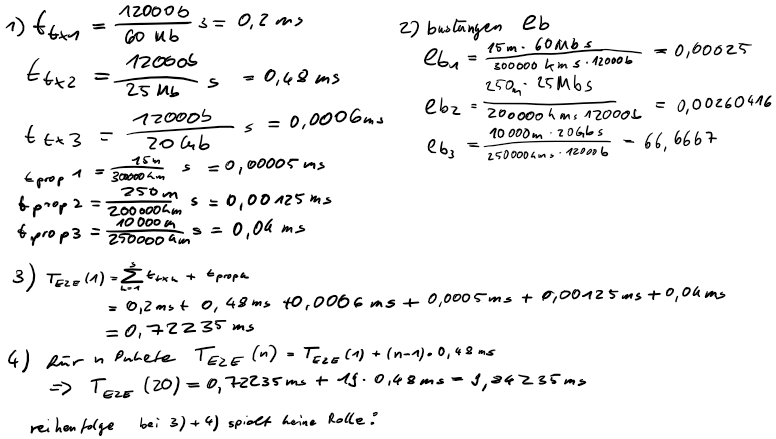 1) t_tx1 = 12000b / 60 Mb s = 0,2 ms
t_tx2 = 12000b / 25 Mb s = 0,48 ms
t_tx3 = 12000b / 20 Gb s = 0,0006ms
t_prop1 = 15m / 300000km s = 0,00005 ms
t_prop2 = 250m / 200000km s = 0,00125 ms
t_prop3 = 10000m / 250000km s = 0,04 ms
2) bustungen eb
eb1 = 15m · 60Mb s / 300000 km s · 12000b = 0,00025
eb2 = 250m · 25Mb s / 200000 km s 12000b = 0,00260416
eb3 = 10 000m · 20Gb s / 250000km s · 12000b = 66,6667
3) T_E2E (1) = Σ_{k=1}^{3} t_txk + t_propk
= 0,2 ms + 0,48 ms + 0,0006 ms + 0,0005 ms + 0,00125 ms + 0,04 ms
= 0,72235 ms
4) für n Pakete T_E2E (n) = T_E2E (1) + (n-1) · 0,48 ms
=> T_E2E (20) = 0,72235 ms + 19 · 0,48 ms = 9,84235 ms
reihenfolge bei 3) + 4) spielt keine Rolle!